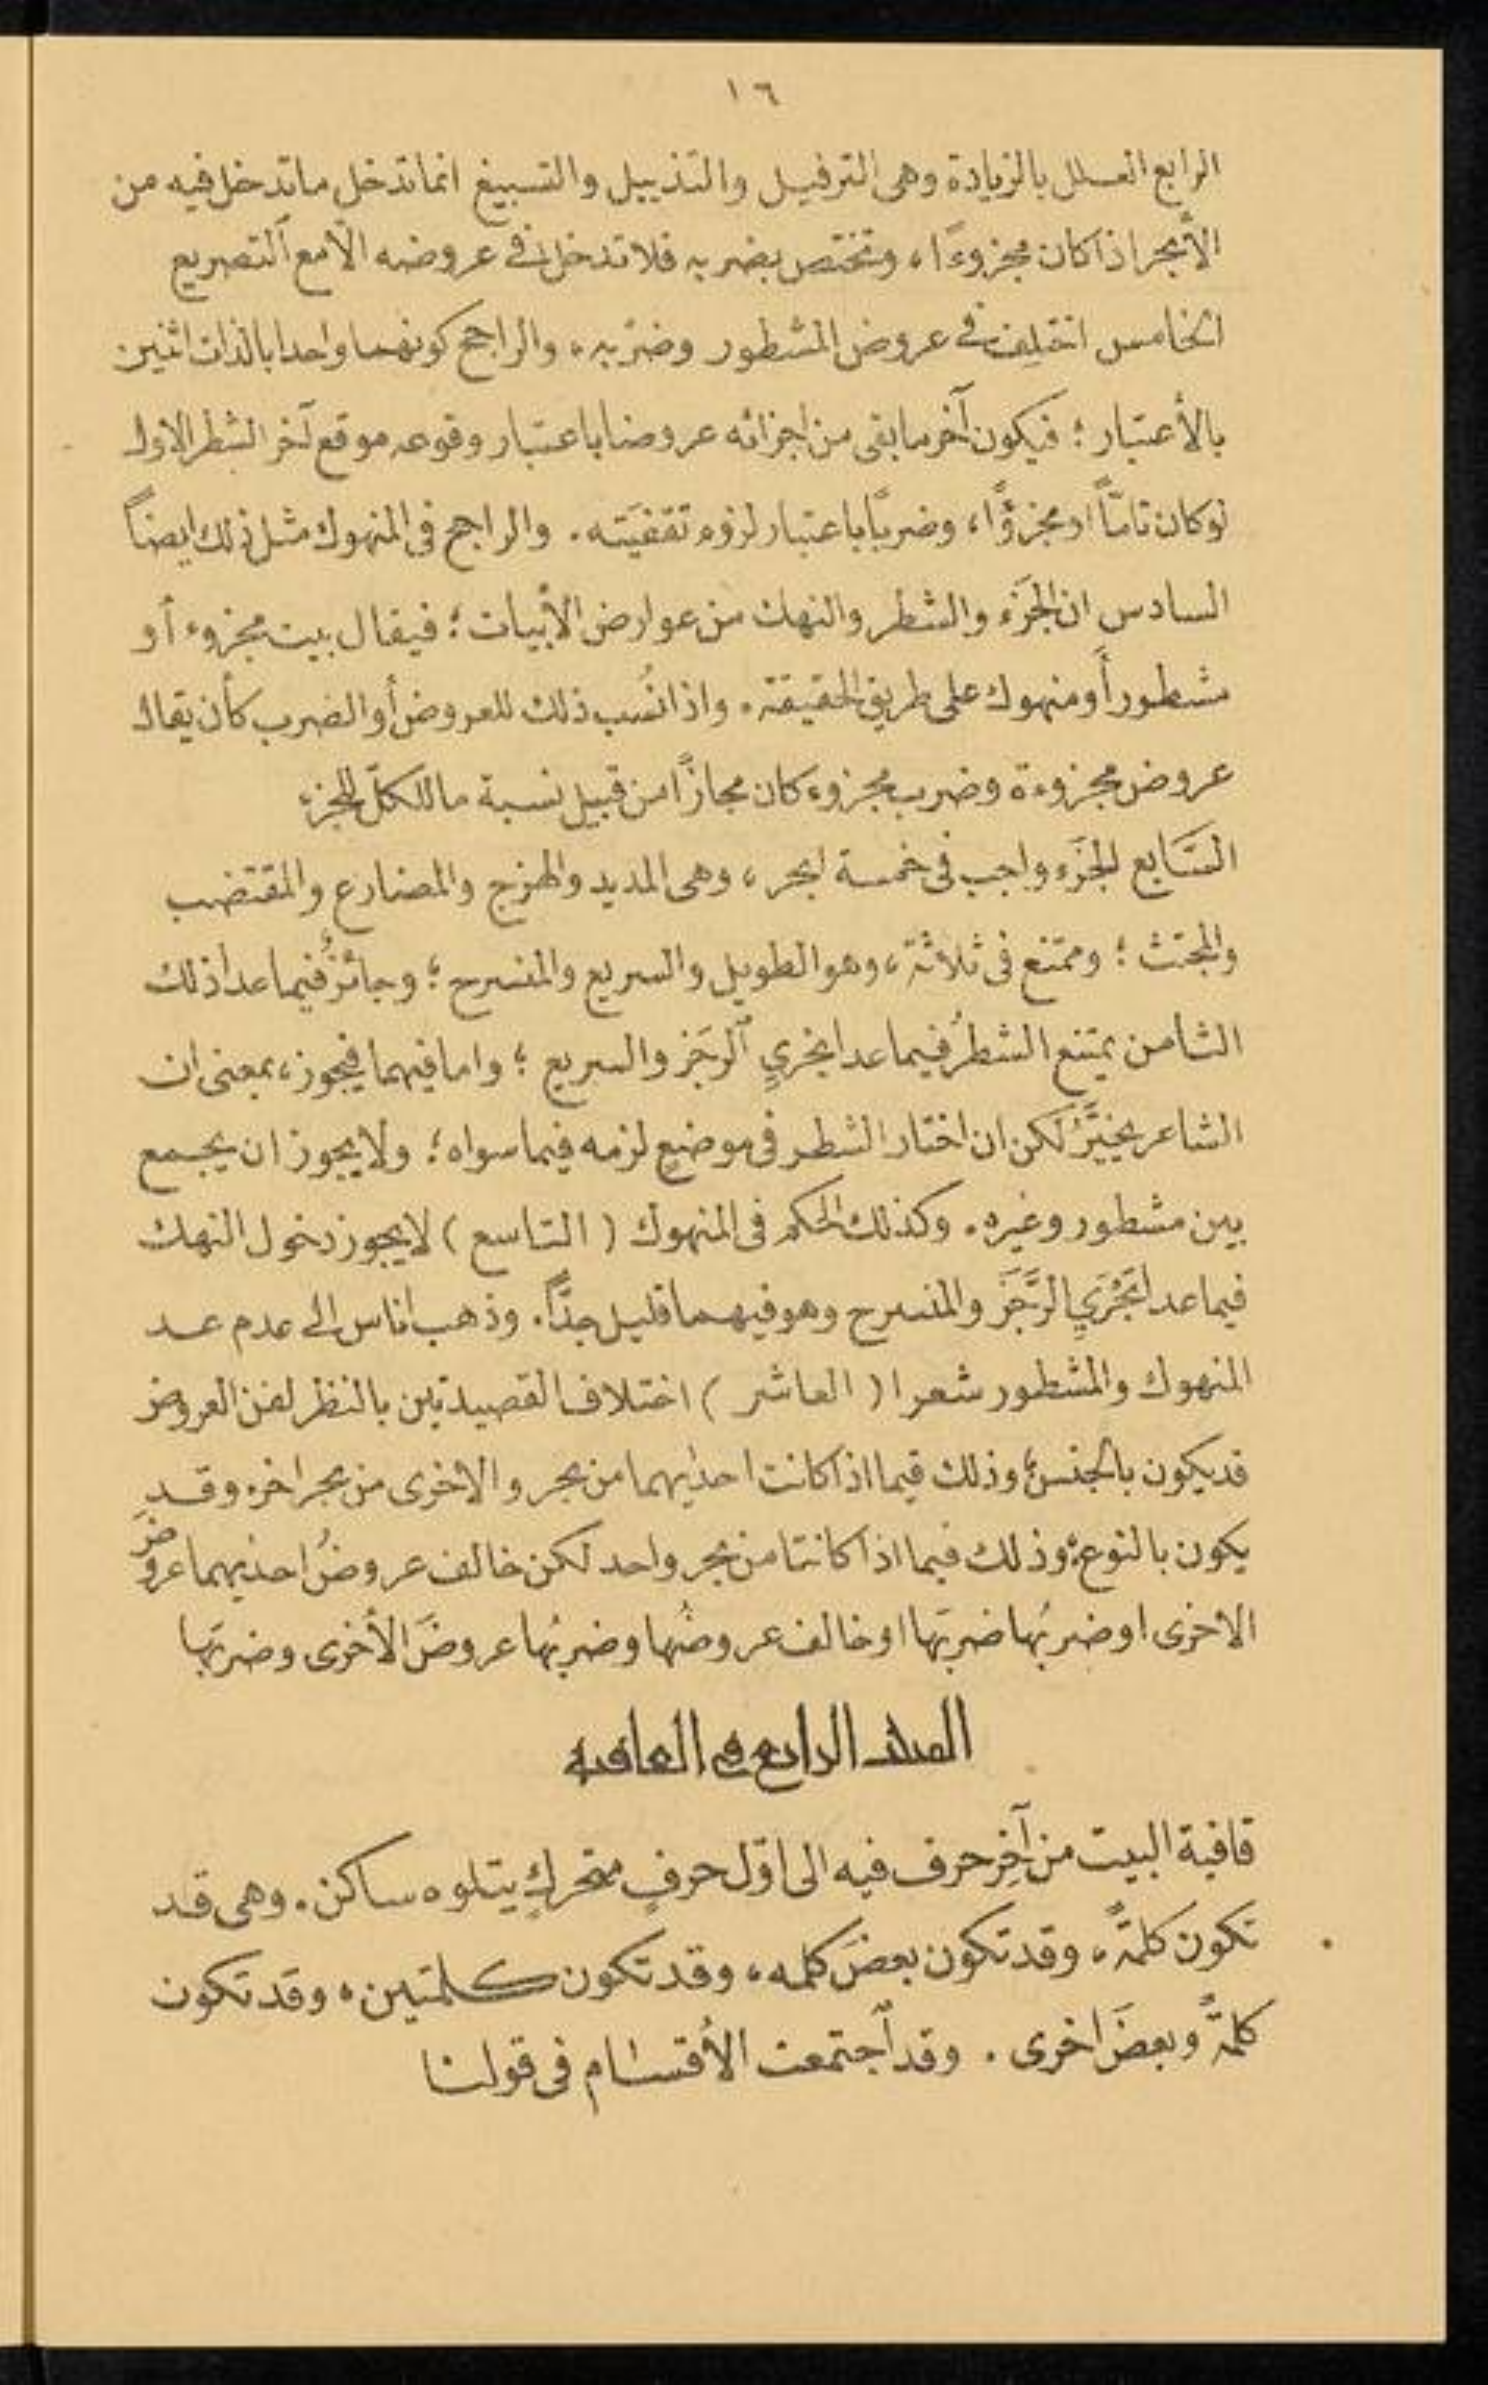 ١٦
الرابع العلل بالزيادة وهى الترفيل والتذييل والتسبيغ انما تدخل ما تدخل فيه من
الأبحر اذا كان مجزوءًا، وتختص بضربه فلا تدخل فى عروضه الّا مع ٱلتصريع
الخامس اختلِف فى عروض المشطور وضرْبه، والراجح كونهما واحدا بالذات اثنين
بالأعتبار؛ فيكون آخر ما بقى من اجزائه عروضا باعتبار وقوعه موقع آخر الشطر الاول
لو كان تامّاً او مجزوًّا، وضربًا باعتبار لزوم تقفيَته. والراجح فى المنهوك مثل ذلك ايضاً
السادس ان الجَزء والشطر والنهك من عوارض الأبيات؛ فيقال بيت مجزوء أو
مشطور أو منهوك على طريق الحقيقة. واذا نُسب ذلك للعروض أو الضرب كأن يقال
عروض مجزوءة وضرب مجزوء كان مجازًا من قبيل نسبة ما للكلّ للجزء
السَّابع الجَزء واجب فى خمسة ابحر، وهى المديد والهزج والمضارع والمقتضب
والمجتث؛ وممتنع فى ثلاثة، وهو الطويل والسريع والمنسرح؛ وجائزٌ فيما عدا ذلك
الثامن يمتنع الشطرُ فيما عدا بحريِ ٱلرجَز والسريع؛ واما فيهما فيجوز، بمعنى ان
الشاعر يخيَّرُ لكن ان اختار الشطر فى موضعٍ لزمه فيما سواه؛ ولا يجوز ان يجمع
بين مشطور وغيره. وكذلك الحكم فى المنهوك (التاسع) لا يجوز دخول النهك
فيما عدا بَحْرَيِ الرَّجَز والمنسرح وهو فيهما قليل جدًّا. وذهب اناس الى عدم عد
المنهوك والمشطور شعرا (العاشر) اختلاف القصيدتين بالنظر لفن العروض
قد يكون بالجنس؛ وذلك فيما اذا كانت احداهما من بحر والاخرى من بحر اخر. وقد
يكون بالنوع؛ وذلك فيما اذا كانتا من بحر واحد لكن خالف عروضُ احديهما عروضَ
الاخرى او ضربُها ضربَها او خالف عروضُها وضربُها عروضَ الأخرى وضربَها
المبحث الرابع فى القافيه
قافية البيت من آخِر حرف فيه الى اوّل حرفٍ متحركٍ يتلوه ساكن. وهى قد
تكون كلمةً، وقد تكون بعضَ كلمه، وقد تكون كلمتين، وقد تكون
كلمةً وبعضَ اخرى. وقد ٱجتمعت الأقسام فى قولنا